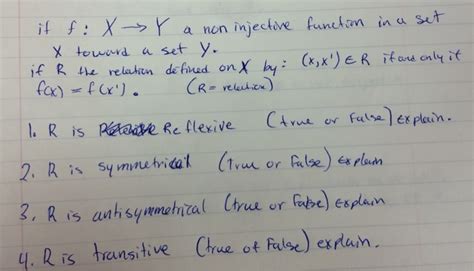 if f: X → Y a non injective function in a set
X toward a set Y.
if R the relation defined on X by: (x,x') ∈ R if and only if
f(x) = f(x'). (R = relation)
1. R is Reflexive (true or False) explain.
2. R is symmetrical (True or False) explain
3. R is antisymmetrical (true or False) explain
4. R is transitive (true of False) explain.